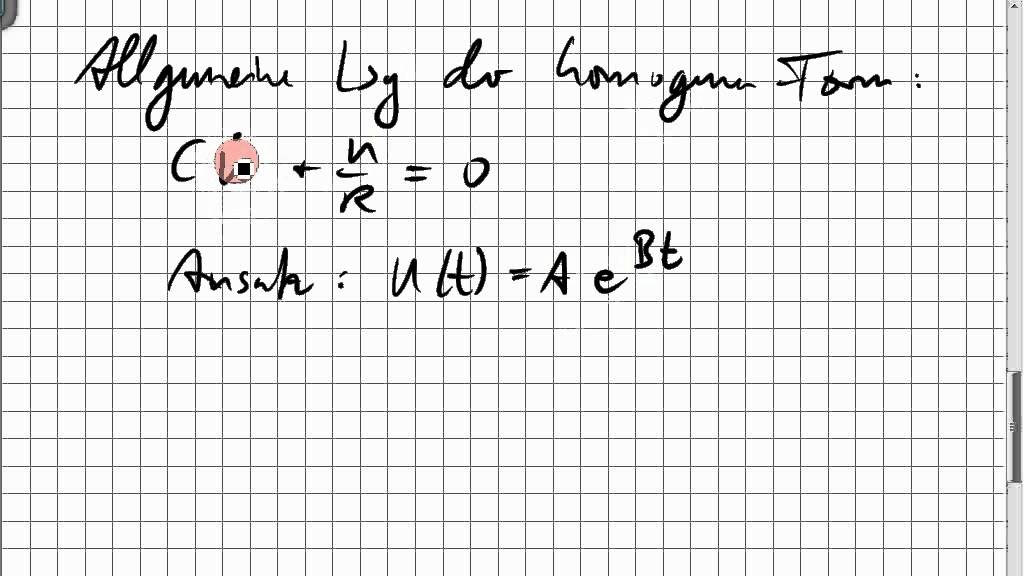 Allgemeine Lsg der homogenen Form:
C u̇ + u/R = 0
Ansatz: u(t) = A e^{Bt}